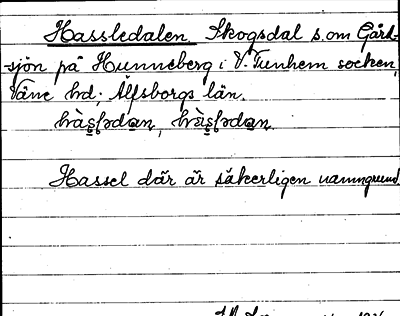 Hassledalen Skogsdal s.om Gård-
sjön på Hunneberg i V. Tunhem socken,
Väne hd; Älfsborgs län.
Hassel där är säkerligen namngrund